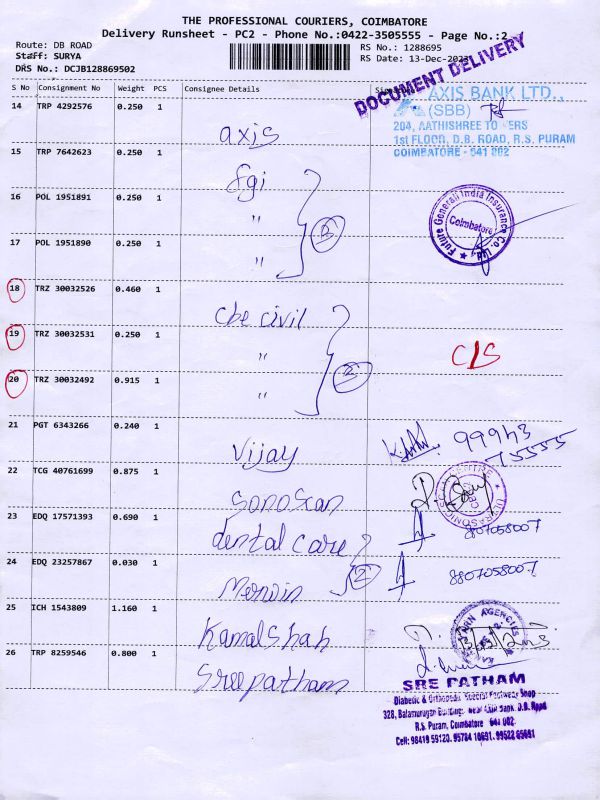 THE PROFESSIONAL COURIERS, COIMBATORE
Delivery Runsheet - PC2 - Phone No.:0422-3505555 - Page No.:2
Route: DB ROAD
RS No.: 1288695
Staff: SURYA
RS Date: 13-Dec-2023
DRS No.: DCJB128869502
DOCUMENT DELIVERY
S No Consignment No Weight PCS Consignee Details
AXIS BANK LTD.,
(SBB)
204, AATHISHREE TOWERS
1st FLOOR, D.B. ROAD, R.S. PURAM
COIMBATORE - 641 002
14 TRP 4292576 0.250 1 axis
15 TRP 7642623 0.250 1 fgi
16 POL 1951891 0.250 1 "
17 POL 1951890 0.250 1 "
Future Generali India Insurance Co. Ltd.
Coimbatore
18 TRZ 30032526 0.460 1 cbe civil
19 TRZ 30032531 0.250 1 "
C/S
20 TRZ 30032492 0.915 1 " 2
21 PGT 6343266 0.240 1 Vijay
99943
75555
22 TCG 40761699 0.875 1 Sonoscan
ULTRASONIC SCAN CENTRE
23 EDQ 17571393 0.690 1 dental care
8807058007
24 EDQ 23257867 0.030 1 Merwin 2
8807058007
25 ICH 1543809 1.160 1 Kamalshah
AGENCIES
13/12/2023
26 TRP 8259546 0.800 1 Sreepatham
SRE PATHAM
Diabetic & Orthopedic Special Footwear Shop
328, Balamurugan Building, Near Axis Bank, D.B. Road
R.S. Puram, Coimbatore - 641 002.
Cell: 98419 55120, 95784 10691, 99522 65691